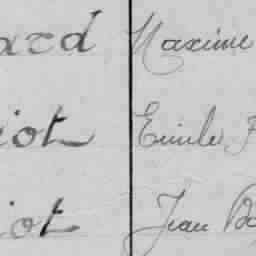 ard Maxime
iot Emile F
iot Jean Bo